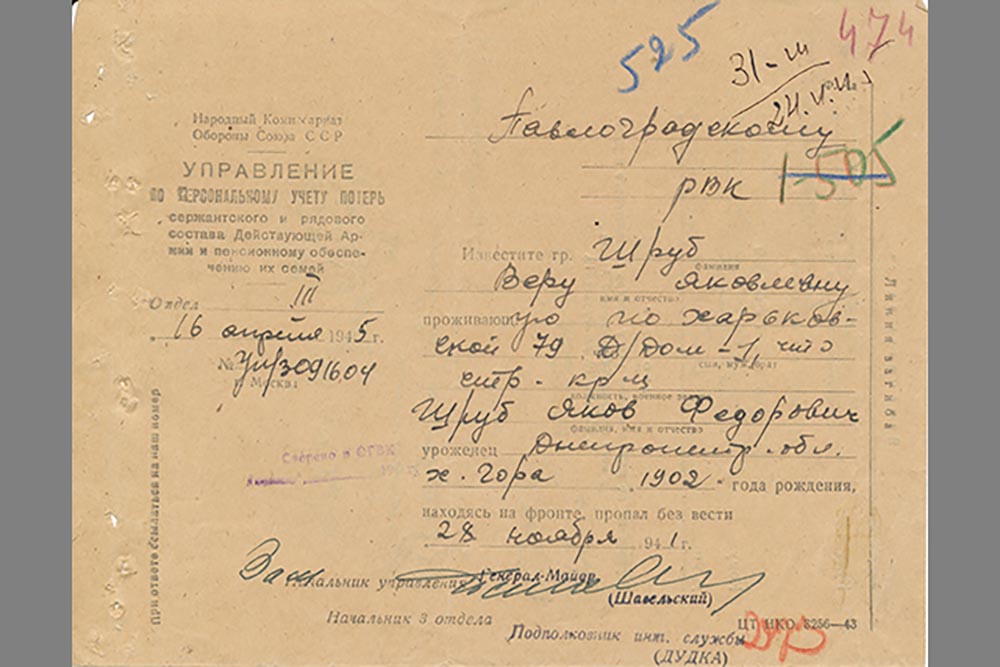 525
474
31-III
24.V.
Народный Комиссариат
Обороны Союза ССР
УПРАВЛЕНИЕ
ПО ПЕРСОНАЛЬНОМУ УЧЕТУ ПОТЕРЬ
сержантского и рядового
состава Действующей Ар-
мии и пенсионному обеспе-
чению их семей
Отдел III
16 апреля 1945 г.
№ 3091604
г. Москва
При ответе ссылаться на наш номер
Сверено в ОГВК
Павлоградскому
РВК 1-505
Известите гр. Шруб
фамилия
Веру Яковлевну
имя и отчество
проживающую по Харьков-
ской 79 Д/Дом-1, что
сын, муж, брат
стр. кр-ц
должность, военное звание
Шруб Яков Федорович
фамилия, имя и отчество
уроженец Днепропетр. обл.
х. Гора 1902 года рождения,
находясь на фронте, пропал без вести
28 ноября 1941 г.
Линия загиба
Зам Начальник управления Генерал-Майор
(Шавельский)
Начальник 3 отдела
Подполковник инт. службы
(ДУДКА)
ЦТ НКО. 3256—43